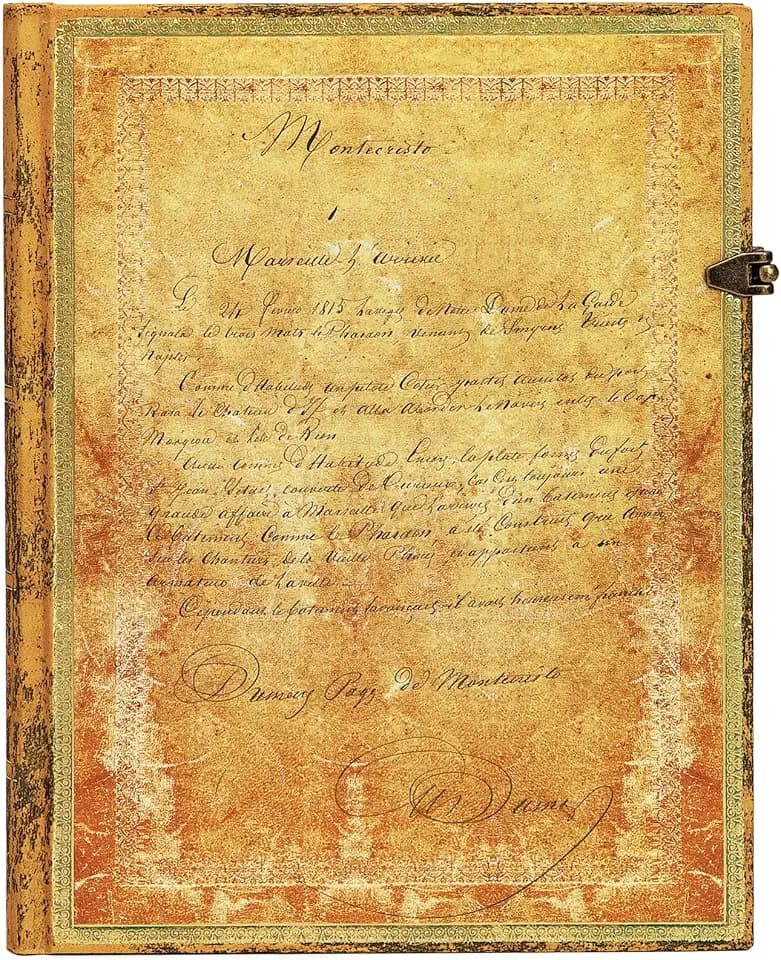 Montecristo
1
Marseille L'arrivée
Le 24 Fevrier 1815 la vigie de Notre Dame de la Garde
Signala le trois mats le Pharaon, venant de Smyrne Trieste et
Naples.
Comme d'Habitude un pilote Cotier partit aussitot du port
Rasa le Chateau d'If et alla aborder le Navire entre le Cap
Morgiou et l'ile de Rion
Aussi comme d'Habitude la plate forme du fort
St Jean s'etait couverte de Curieux, Car C'est toujours une
grande affaire à Marseille que l'arrivée d'un batiment quand
le batiment Comme le Pharaon a été Construit
Sur les Chantiers de la Vieille Phocée et appartient à un
armateur de la ville
Cependant le batiment s'avançait, il avait heureusement franchi
Dumas Page de Montecristo
A Dumas